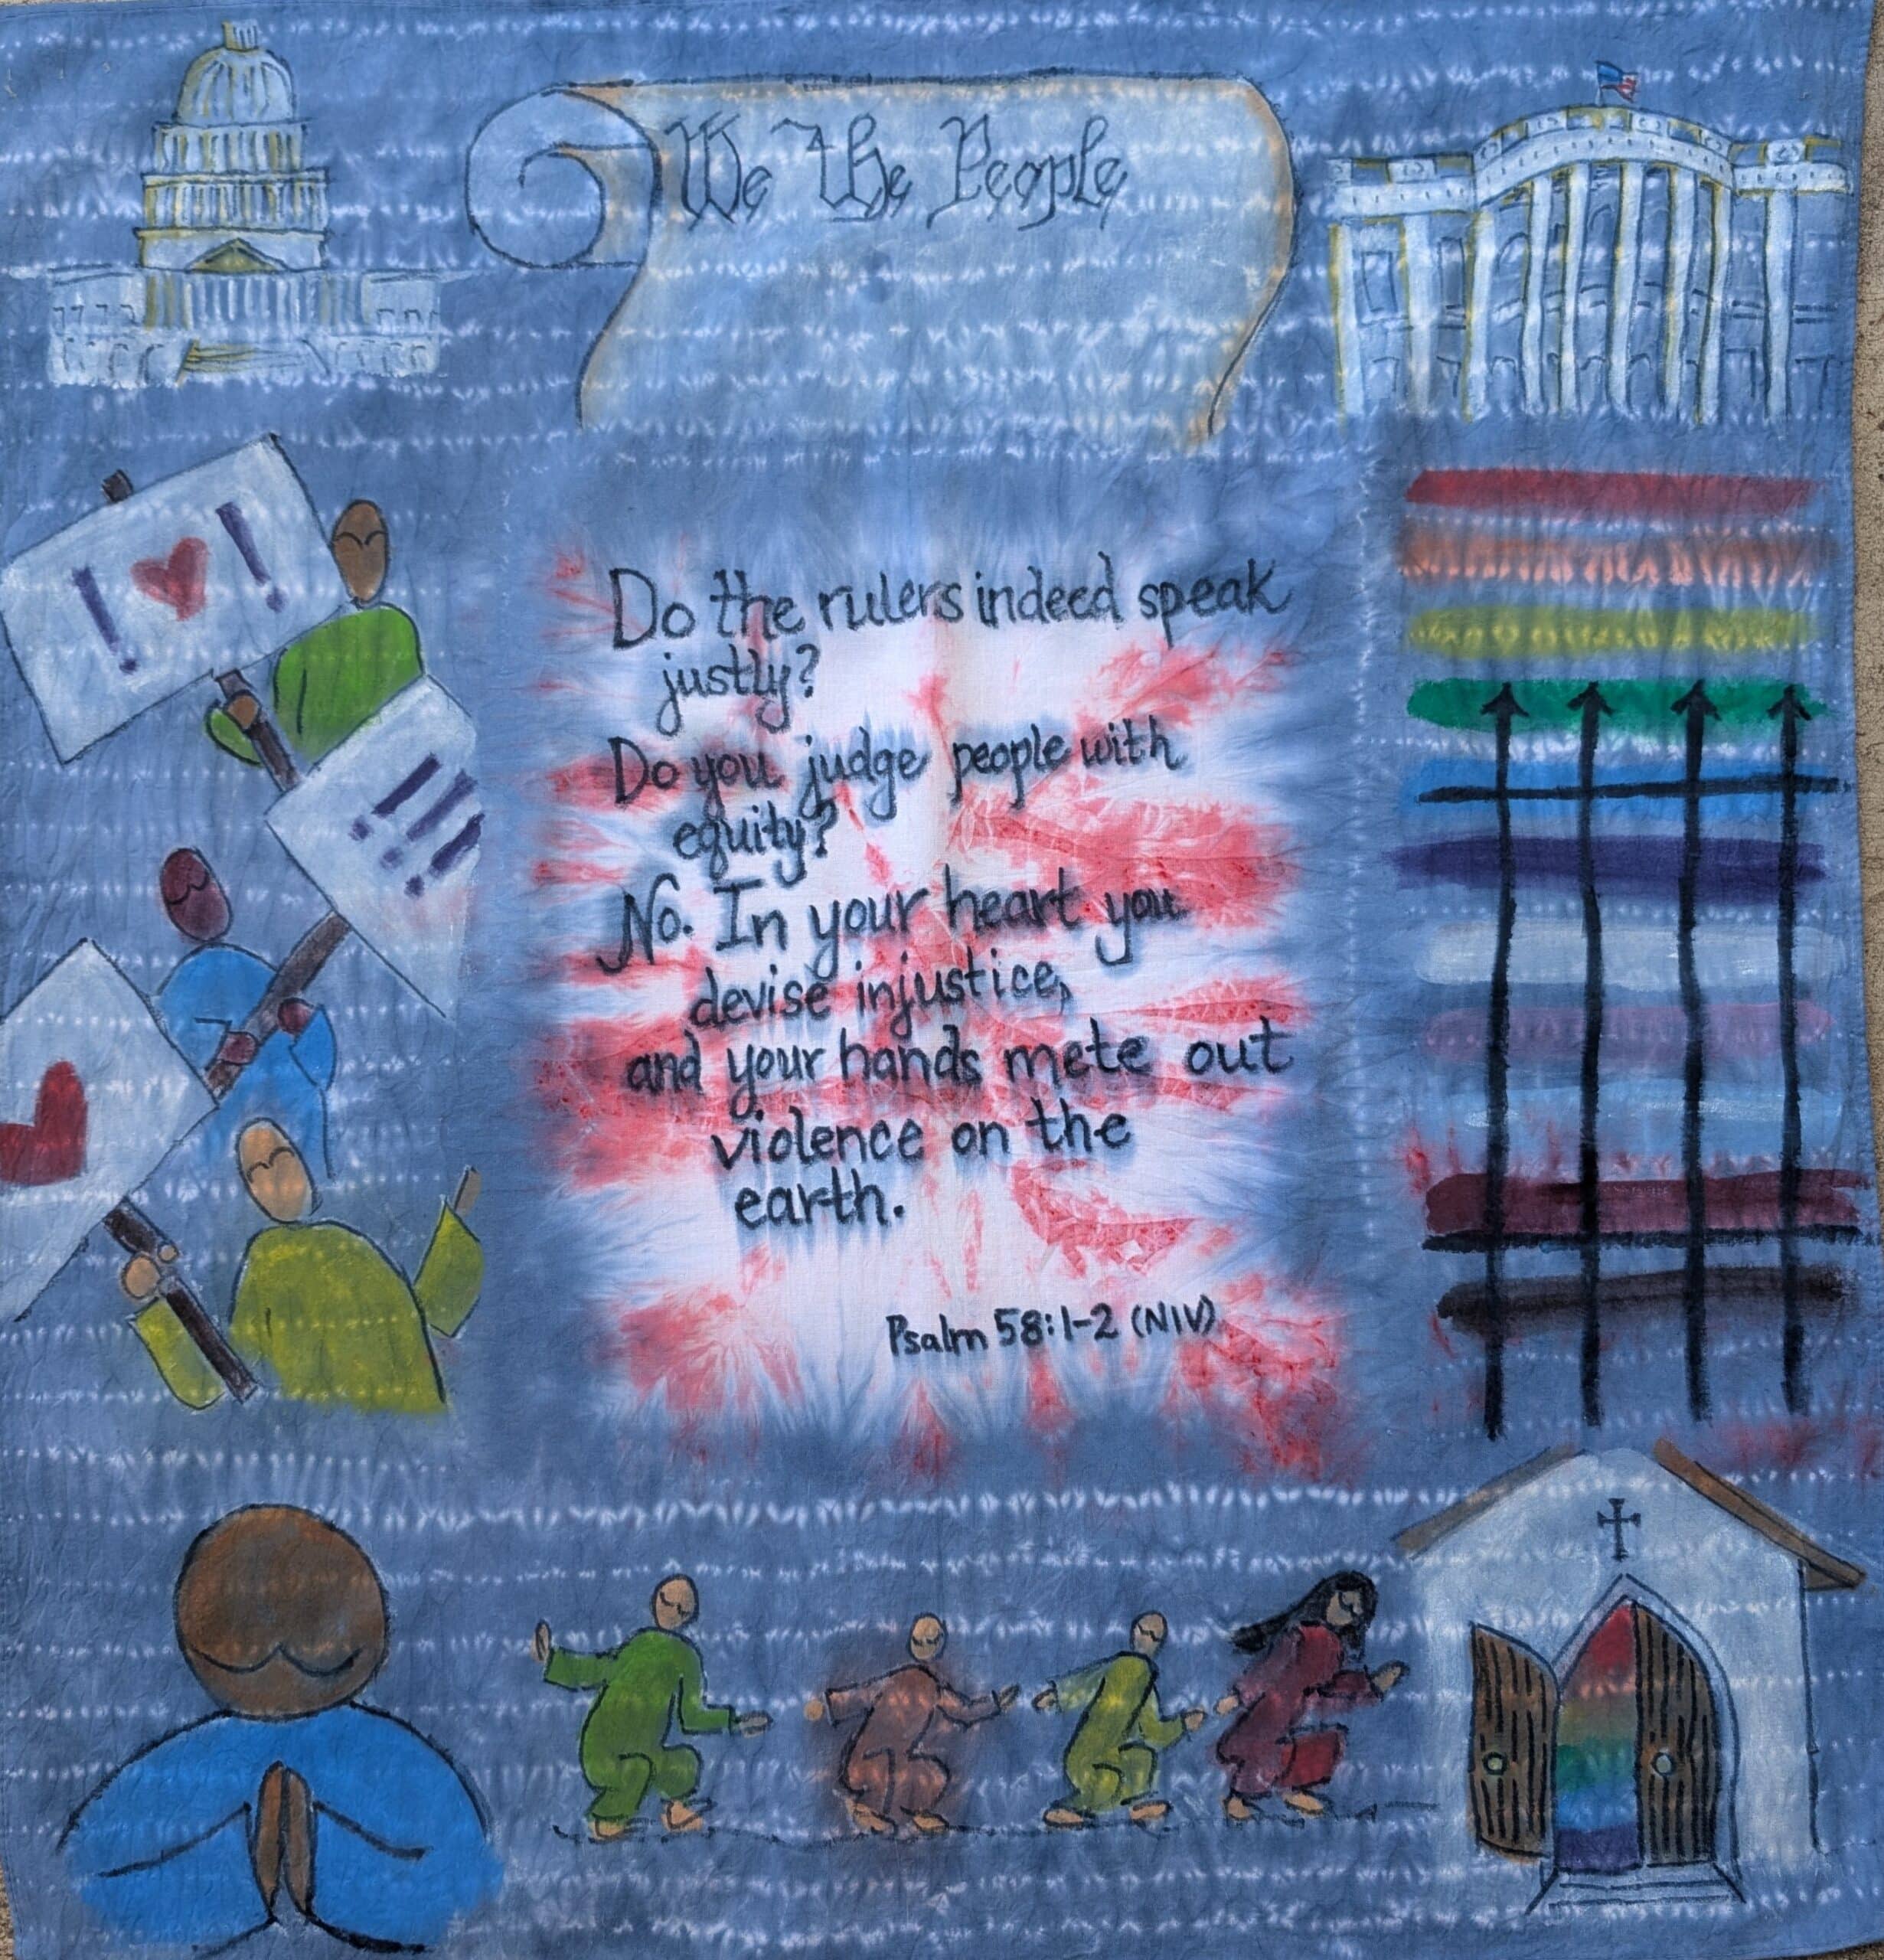 We The People
! ❤ !
!!!
Do the rulers indeed speak
justly?
Do you judge people with
equity?
No. In your heart you
devise injustice,
and your hands mete out
violence on the
earth.
Psalm 58:1-2 (NIV)